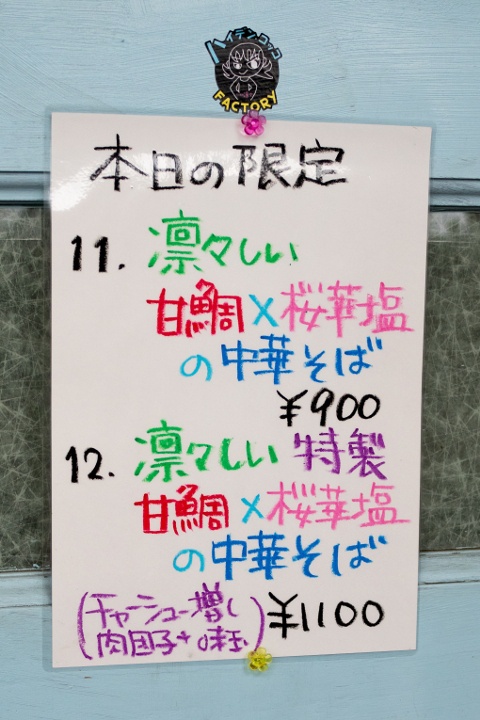 ハイデンコッコ
FACTORY
本日の限定
11. 凛々しい
甘鯛×桜華塩
の中華そば
¥900
12. 凛々しい 特製
甘鯛×桜華塩
の中華そば
(チャーシュー増し
肉団子+味玉) ¥1100